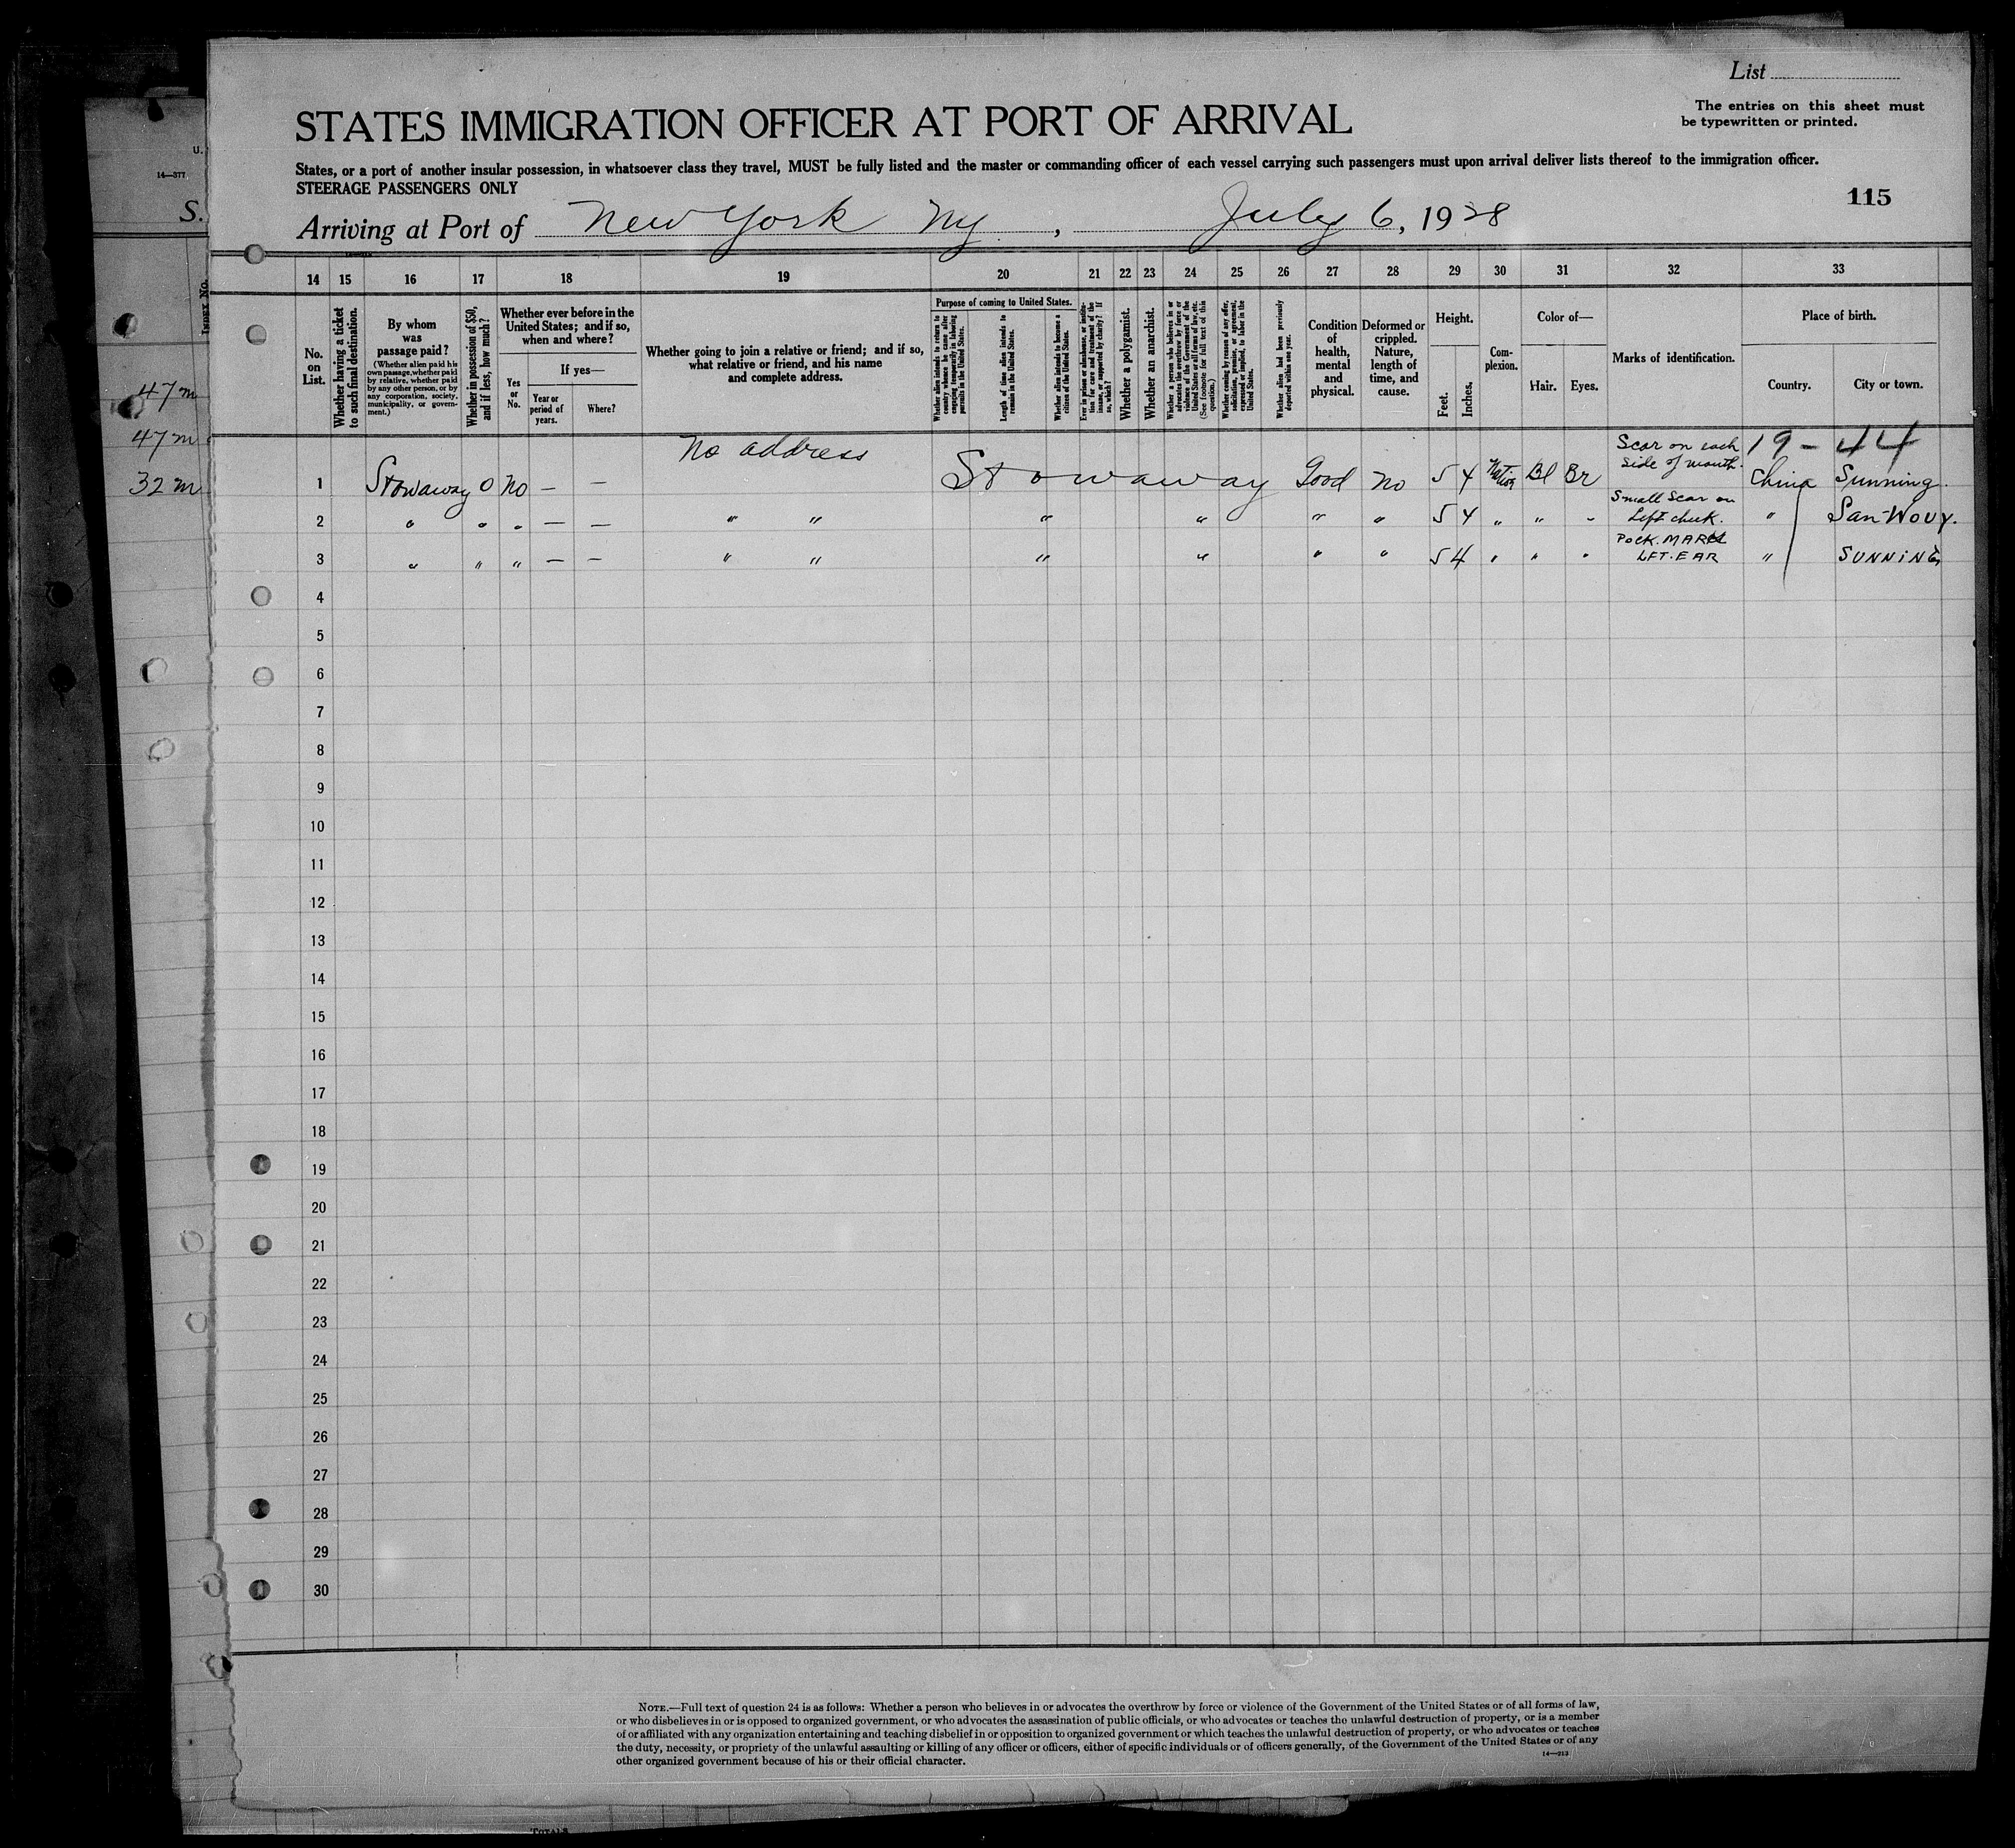 List
The entries on this sheet must
be typewritten or printed.
STATES IMMIGRATION OFFICER AT PORT OF ARRIVAL
States, or a port of another insular possession, in whatsoever class they travel, MUST be fully listed and the master or commanding officer of each vessel carrying such passengers must upon arrival deliver lists thereof to the immigration officer.
STEERAGE PASSENGERS ONLY
115
Arriving at Port of New York Ny , July 6, 1928
U.
14—377
S.
INDEX No.
47 m
47 m
32 m
14 15 16 17 18 19 20 21 22 23 24 25 26 27 28 29 30 31 32 33
No.
on
List.
Whether having a ticket
to such final destination.
By whom
was
passage paid?
(Whether alien paid his
own passage, whether paid
by relative, whether paid
by any other person, or by
any corporation, society,
municipality, or govern-
ment.)
Whether in possession of $50,
and if less, how much?
Whether ever before in the
United States; and if so,
when and where?
Yes
or
No.
If yes—
Year or
period of
years.
Where?
Whether going to join a relative or friend; and if so,
what relative or friend, and his name
and complete address.
Purpose of coming to United States.
Whether alien intends to return to
country whence he came after
engaging temporarily in laboring
pursuits in the United States.
Length of time alien intends to
remain in the United States.
Whether alien intends to become a
citizen of the United States.
Ever in prison or almshouse, or institu-
tion for care and treatment of the
insane, or supported by charity? If
so, which?
Whether a polygamist.
Whether an anarchist.
Whether a person who believes in or
advocates the overthrow by force or
violence of the Government of the
United States or all forms of law, etc.
(See footnote for full text of this
question.)
Whether coming by reason of any offer,
solicitation, promise, or agreement,
expressed or implied, to labor in the
United States.
Whether alien had been previously
deported within one year.
Condition
of
health,
mental
and
physical.
Deformed or
crippled.
Nature,
length of
time, and
cause.
Height.
Feet.
Inches.
Com-
plexion.
Color of—
Hair.
Eyes.
Marks of identification.
Place of birth.
Country.
City or town.
No address
Scar on each
side of mouth.
19 - 44
1 Stowaway 0 No — — Stowaway Good No 5 4 Bl Br China Sunning
Small Scar on
Left cheek.
2 " " " — — " " " " " " 5 4 " " " " San-Wouy.
POCK. MARKS
LFT. EAR
3 " " " — — " " " " " " 5 4 " " " " SUNNING
4
5
6
7
8
9
10
11
12
13
14
15
16
17
18
19
20
21
22
23
24
25
26
27
28
29
30
NOTE.—Full text of question 24 is as follows: Whether a person who believes in or advocates the overthrow by force or violence of the Government of the United States or of all forms of law,
or who disbelieves in or is opposed to organized government, or who advocates the assassination of public officials, or who advocates or teaches the unlawful destruction of property, or is a member
of or affiliated with any organization entertaining and teaching disbelief in or opposition to organized government or which teaches the unlawful destruction of property, or who advocates or teaches
the duty, necessity, or propriety of the unlawful assaulting or killing of any officer or officers, either of specific individuals or of officers generally, of the Government of the United States or of any
other organized government because of his or their official character.
14—213
TOTALS